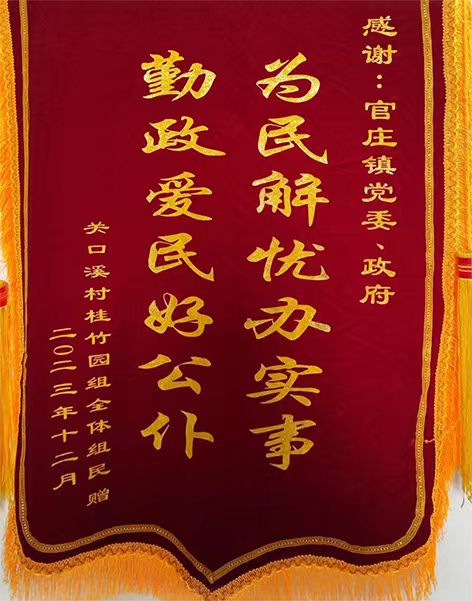 感谢：官庄镇党委、政府
为民解忧办实事
勤政爱民好公仆
关口溪村桂竹园组全体组民赠
二〇二三年十二月